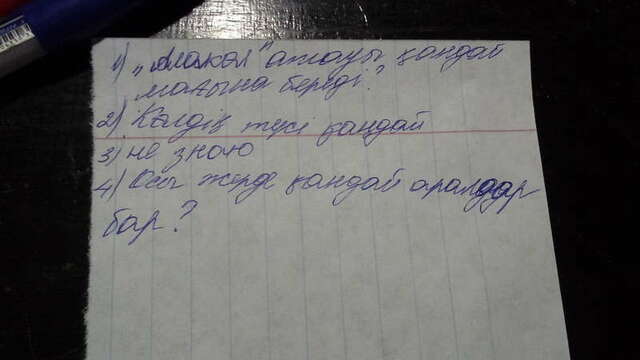 1) „Алакол" атауы қандай
мағына береді?
2) Көлдің түсі қандай
3) не знаю
4) Осы жерде қандай аралдар
бар?